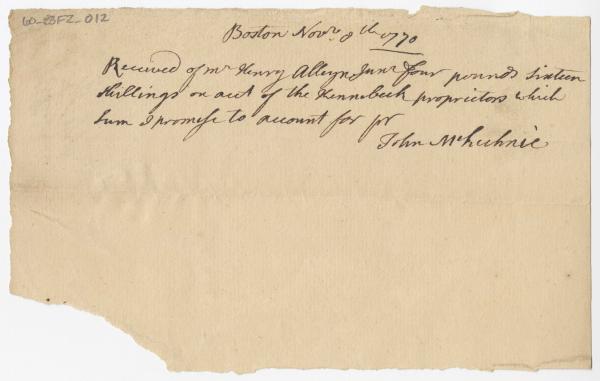 60-23FZ-012
Boston Novr. 8th 1770
Received of mr Henry Alleyn Junr four pounds sixteen
shillings on act of the Kennebeck proprietors which
sum I promise to account for pr
John McKechnie